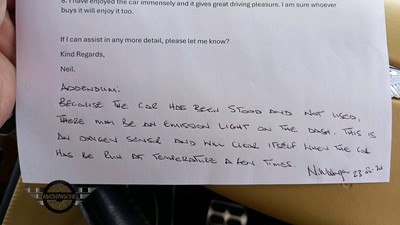 8. I have enjoyed the car immensely and it gives great driving pleasure. I am sure whoever
buys it will enjoy it too.
If I can assist in any more detail, please let me know?
Kind Regards,
Neil.
ADDENDUM:
BECAUSE THE CAR HAS BEEN STOOD AND NOT USED,
THERE MAY BE AN EMISSION LIGHT ON THE DASH. THIS IS
AN OXYGEN SENSOR AND WILL CLEAR ITSELF WHEN THE CAR
HAS BE RUN AT TEMPERATURE A FEW TIMES.